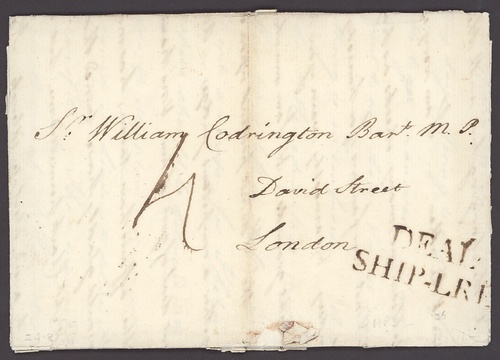 Sr. William Codrington Bart. M.P.
David Street
London
DEAL
SHIP-LRE